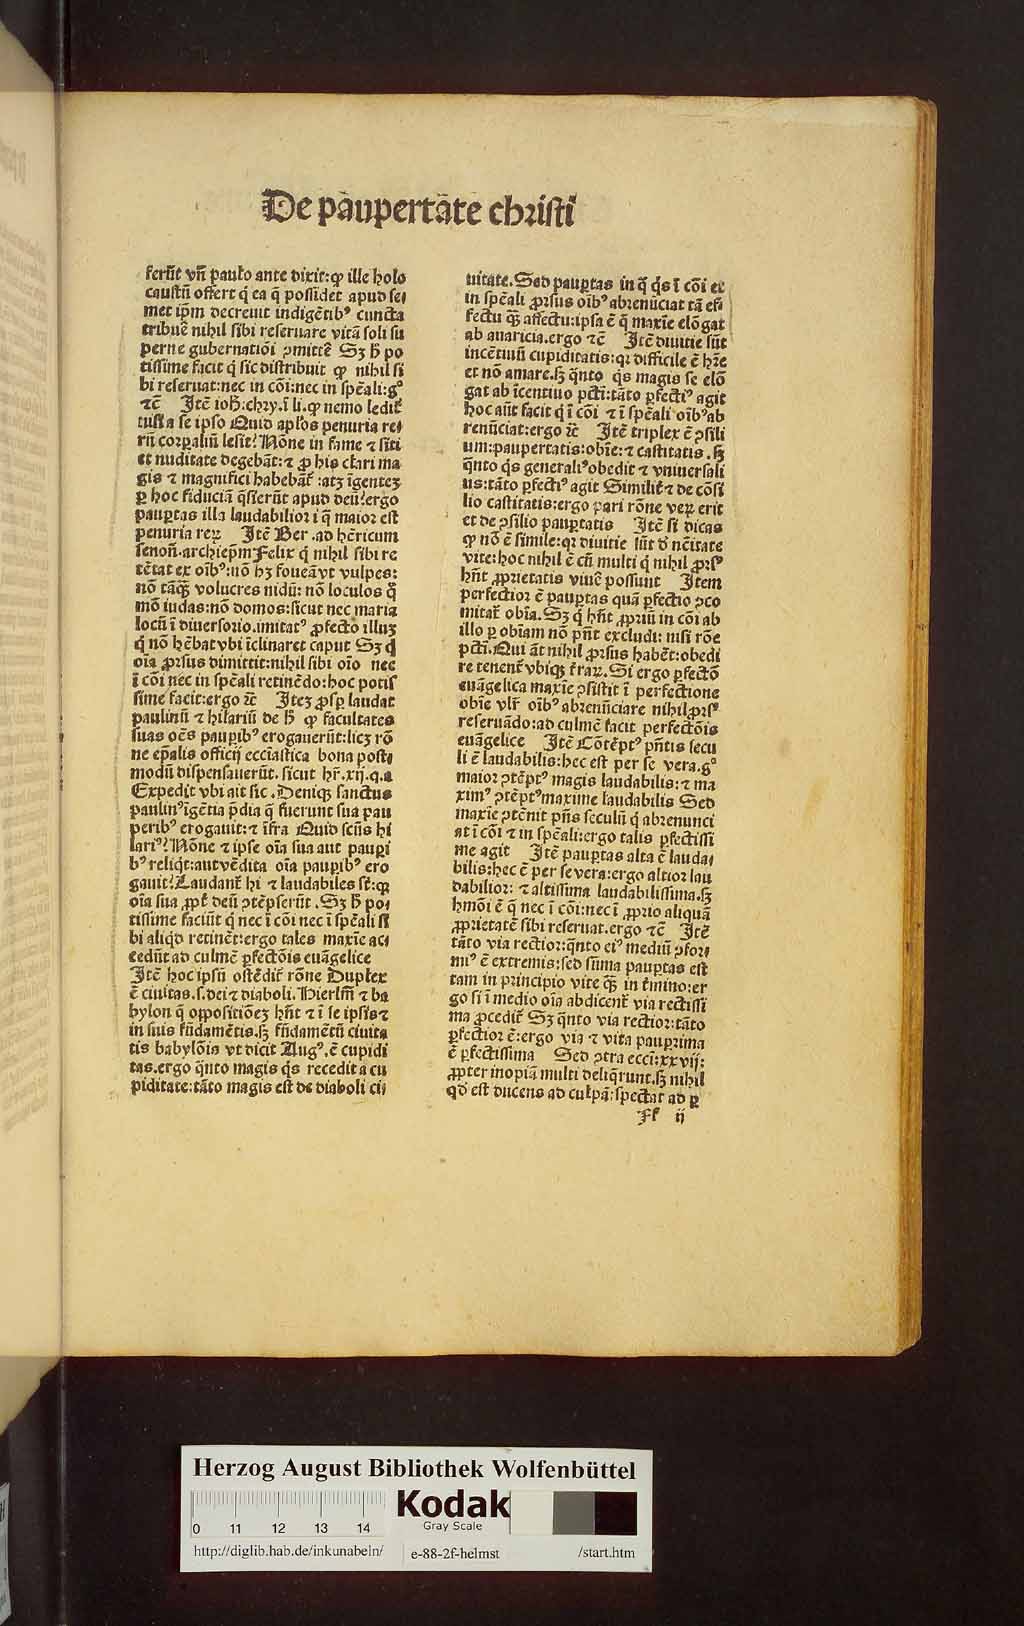 De paupertāte christi
ferūt vñ paulo ante dixit:ꝙ ille holo
caustū offert q̄ ea q̄ possidet apud se⸗
met ip̄m decreuit indigētibꝰ cuncta
tribuē nihil sibi reseruare vitā soli su
perne gubernatiōi ꝯmittē Sꝫ h̄ po
tissime facit q̄ sic distribuit ꝙ nihil si
bi reseruat:nec in cōi:nec in spēali:gͦ
⁊c̄ Itē ioh̄:chry.ī li.ꝙ nemo ledit᷑
nisi a se ipso Quid apl̓os penuria re⸗
rū corꝑaliū lesit?Nōne in fame ⁊ siti
et nuditate degebāt:⁊ ꝓ his clari ma
gis ⁊ magnifici habebāt᷑ :atꝫ īgenteꝫ
ꝑ hoc fiduciā q̄sierūt apud deū?ergo
pauꝑtas illa laudabilior ī q̄ maior est
penuria reꝝ Itē Ber .ad hēricum
senoñ.archiep̄m Felix q̄ nihil sibi re
tētat ex oībꝰ:nō hꝫ foueā vt vulpes:
nō tāꝙ̄ volucres nidū: nō loculos q̄
mō iudas:nō domos:sicut nec maria
locū ī diuersorio.imitatꝰ ꝓfecto illuꝫ
q̄ nō hēbat vbi īclinaret caput Sꝫ q̄
oīa ꝓrsus dimittit:nihil sibi oīo nec
ī cōi nec in spēali retinēdo:hoc potis
sime facit:ergo ⁊c̄ Iteꝫ ꝓsꝑ laudat
paulinū ⁊ hilariū de h̄ ꝙ facultates
suas oēs pauꝑibꝰ erogauerūt:licꝫ rō
ne ep̄alis officij ecclīastica bona post⸗
modū dispensauerūt. sicut hr̄.xij.q.a
Expedit vbi ait sic .Deniqꝫ sanctus
paulinꝰ īgētia p̄dia q̄ fuerunt sua pau
peribꝰ erogauit:⁊ īfra Quid scūs hi
lariꝰ?Nōne ⁊ ipse oīa sua aut pauꝑi
bꝰ reliq̄t:aut vēdita oīa pauꝑibꝰ ero
gauit?Laudant᷑ hi ⁊ laudabiles st̄:qꝫ
oīa sua ꝓpt̄ deū ꝯtēpserūt .Sꝫ h̄ po⸗
tissime faciūt q̄ nec ī cōi nec ī spēali si
bi aliq̄d retinēt:ergo tales maxīe ac⸗
cedūt ad culmē ꝑfectōis euāgelice
Itē hoc ipsū ostēdit᷑ rōne Duplex
ē ciuitas.s.dei ⁊ diaboli.Hierlm̄ ⁊ ba
bylon q̄ oppositiōeꝫ hn̄t ⁊ ī se ipsis ⁊
in suis fūdamētis.sꝫ fūdamētū ciuita
tis babylōis vt dicit Augꝰ.ē cupidi
tas.ergo q̄nto magis q̄s recedit a cu
piditate:tāto magis est de diaboli ci⸗
uitate.Sed pauꝑtas in q̄ q̄s ī cōi et
in spēali ꝓrsus oībꝰ abrenūciat tā ef⸗
fectu ꝙ̄ affectu:ipsa ē q̄ maxīe elōgat
ab auaricia.ergo ⁊c̄ Itē diuitie sūt
incētiuū cupiditatis:qꝛ difficile ē hr̄e
et nō amare.sꝫ q̄nto q̄s magis se elō
gat ab īcentiuo pctī:tāto ꝑfectiꝰ agit
hoc aūt facit q̄ ī cōi ⁊ ī spēali oībꝰ ab
renūciat:ergo ⁊c̄ Itē triplex ē ꝯsili
um:paupertatis:obīe:⁊ castitatis .sꝫ
q̄nto q̄s generaliꝰ obedit ⁊ vniuersali
us:tāto ꝑfectiꝰ agit Similit᷑ ⁊ de cōsi
lio castitatis:ergo pari rōne veꝝ erit
et de ꝯsilio pauꝑtatis Itē si dicas
ꝙ nō ē simile:qꝛ diuitie sūt d̄ nēcitate
vite:hoc nihil ē cū multi q̄ nihil ꝓrsꝰ
hn̄t ꝓprietatis viuē possunt Item
perfectior ē pauꝑtas quā ꝑfectio ꝯco
mitat᷑ obīa. Sꝫ q̄ hn̄t ꝓpriū in cōi ab
illo ꝑ obīam nō pn̄t excludi: nisi rōe
pctī.Qui āt nihil ꝓrsus habēt:obedi
re tenent᷑ vbiqꝫ t᷑raꝝ. Si ergo ꝑfectō
euāgelica maxīe ꝯsistit ī perfectione
obīe vlr̄ oībꝰ abrenūciare nihil ꝓrsꝰ
reseruādo:ad culmē facit perfectōis
euāgelice Itē Cōtēptꝰ pn̄tis secu
li ē laudabilis:hec est per se vera.gͦ
maior ꝯtēptꝰ magis laudabilis:⁊ ma
ximꝰ ꝯtēptꝰ maxime laudabilis Sed
maxīe ꝯtēnit pn̄s seculū q̄ abrenunci
at ī cōi ⁊ in spēali:ergo talis ꝑfectissi
me agit Itē pauꝑtas alta ē lauda⸗
bilis:hec ē per se vera:ergo altior lau
dabilior: ⁊ altissima laudabilissima.sꝫ
hmōi ē q̄ nec ī cōi:nec ī ꝓprio aliquā
ꝓprietatē sibi reseruat.ergo ⁊c̄ Itē
tāto via rectior:q̄nto eiꝰ mediū ꝯfor⸗
miꝰ ē extremis:sed sūma pauꝑtas est
tam in principio vite ꝙ̄ in t᷑mino:er
go si ī medio oīa abdicent᷑ via rectissi
ma ꝓcedit᷑ Sꝫ q̄nto via rectior:tāto
ꝑfectior ē:ergo via ⁊ vita pauꝑrima
ē ꝑfectissima Sed ꝯtra ecci:xxvij:
ꝓpter inopiā multi deliq̄runt.sꝫ nihil
qd̄ est ducens ad culpā:spectat ad ꝑ
Ff ij
Herzog August Bibliothek Wolfenbüttel
0 11 12 13 14
Kodak
Gray Scale
http://diglib.hab.de/inkunabeln/ e-88-2f-helmst /start.htm